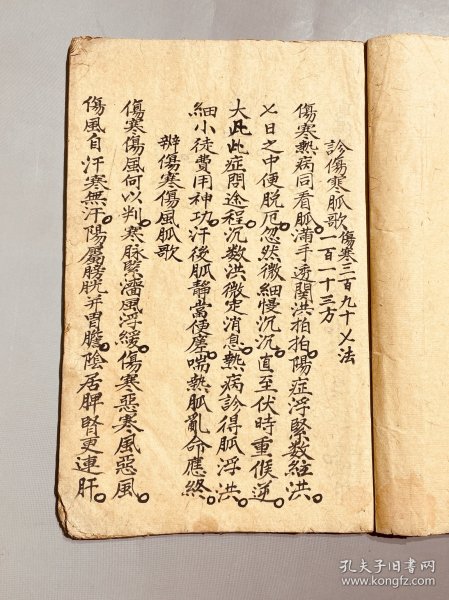 診傷寒脈歌
傷寒三百九十七法
一百一十三方
傷寒熱病同看脈。滿手透関洪拍拍。陽症浮緊数紝洪。
七日之中便脫厄。忽然微細慢沉沉。直至伏時重候逆。
大此此症問途程。沉数洪微定消息。熱病診得脈浮洪。
細小徒費用神功。汗後脈靜當便瘥。喘熱脈亂命應終。
辨傷寒傷風脈歌
傷寒傷風何以判。寒脉緊濇風浮緩。傷寒惡寒風惡風。
傷風自汗寒無汗。陽屬膀胱并胃膽。陰居脾腎更連肝。
孔夫子旧书网
www.kongfz.com